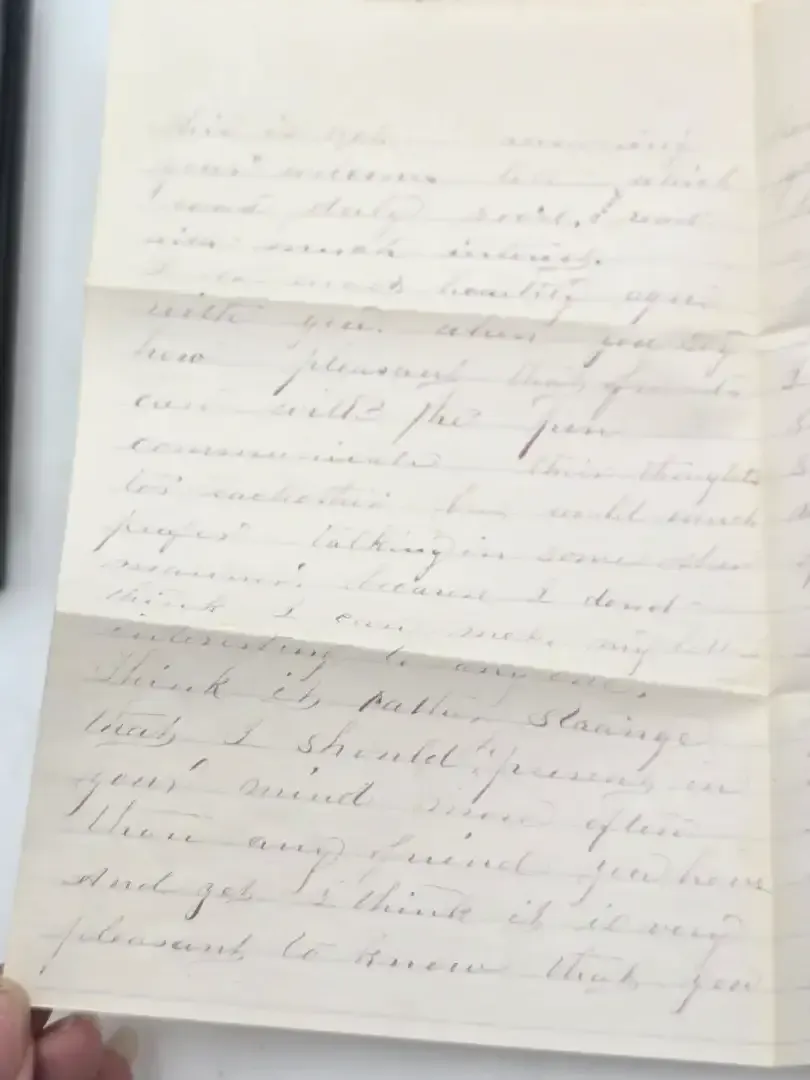 your welcome which
read
much interest.
I most heartily agree
with you when you say
how pleasant that friends
can with the pen
communicate their thoughts
to eachother but would much
prefer talking in some other
manner because I dond
think I can make my
interesting to any one.
Think it rather straange
that I should be present in
your mind more often
than any friend you have
And yet I think it is very
pleasant to know that you